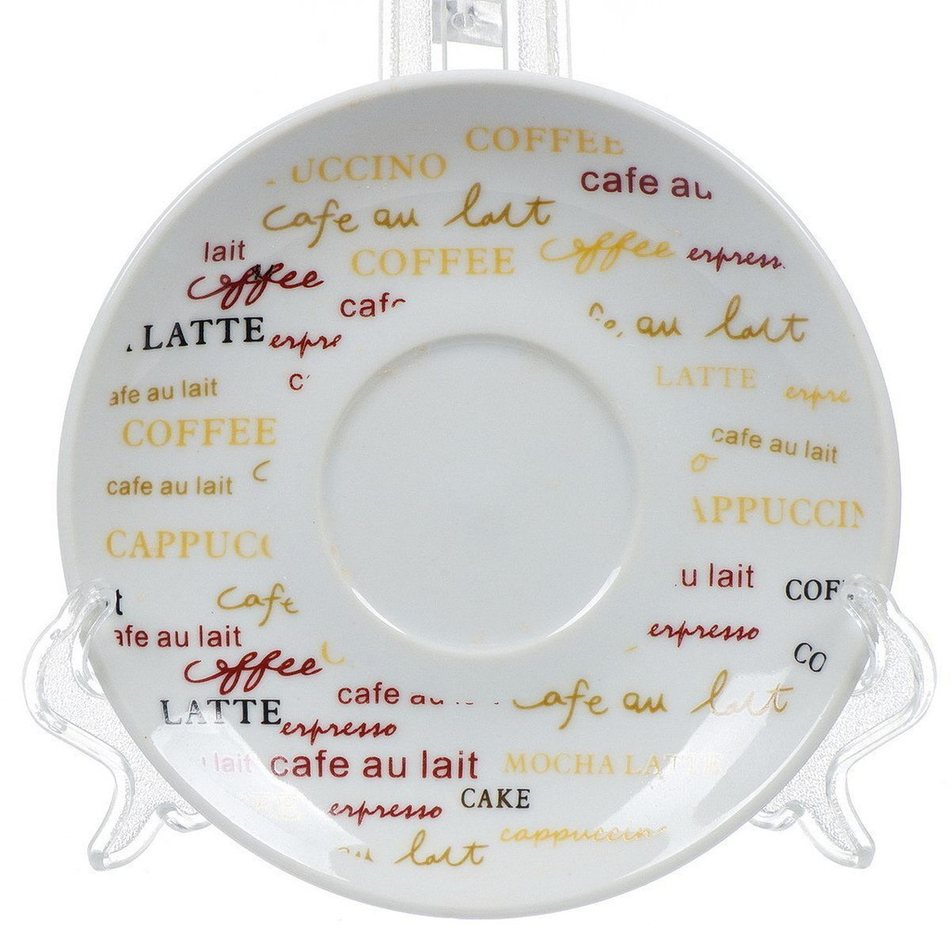 COFFEE
UCCINO
cafe au
cafe au lait
lait
COFFEE
coffee
erpress
coffee
cafe
au lait
LATTE
erpre
LATTE
erpre
c
afe au lait
COFFEE
cafe au lait
cafe au lait
o
APPUCCIN
CAPPUCC
u lait
COF
cafe
t
afe au lait
erpresso
CO
coffee
cafe au
afe au lait
LATTE
erpresso
lait
cafe au lait
MOCHA LATTE
erpresso
CAKE
cappuccino
au lait